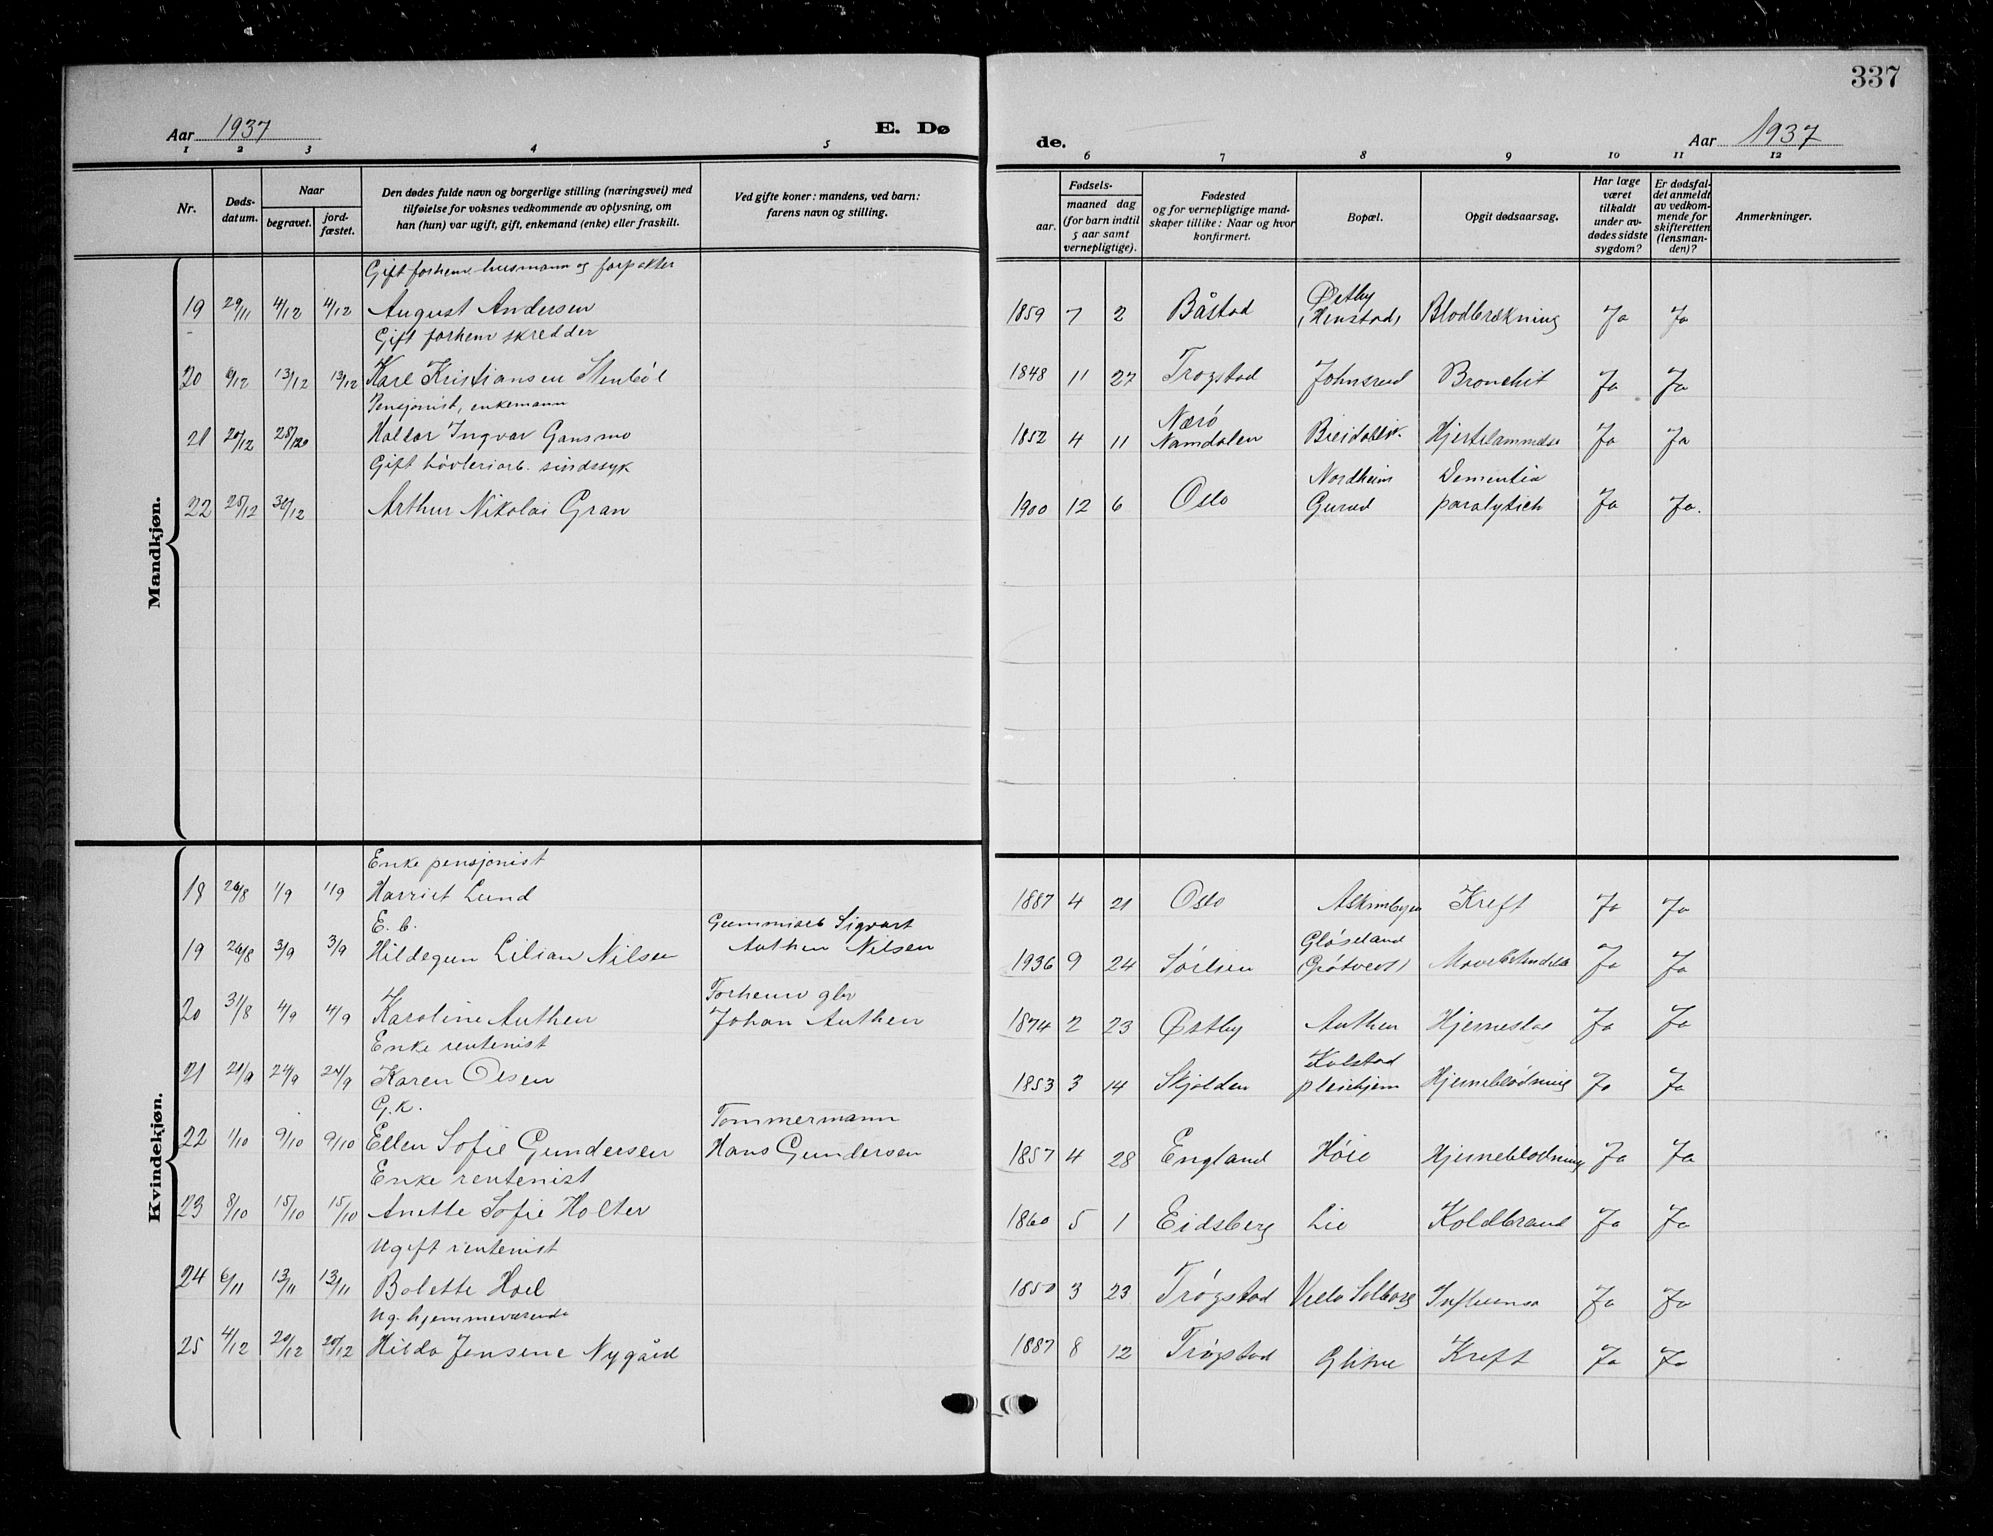 337
Aar 1937
E. Dø
de.
Aar 1937
1 2 3 4 5
6 7 8 9 10 11 12
Nr.
Døds-
datum.
Naar
begravet.
jord-
fæstet.
Den dødes fulde navn og borgerlige stilling (næringsvei) med
tilføielse for voksnes vedkommende av oplysning, om
han (hun) var ugift, gift, enkemand (enke) eller fraskilt.
Ved gifte koner: mandens, ved barn:
farens navn og stilling.
Fødsels-
aar.
maaned dag
(for barn indtil
5 aar samt
vernepligtige).
Fødested
og for vernepligtige mand-
skaper tillike: Naar og hvor
konfirmert.
Bopæl.
Opgit dødsaarsag.
Har læge
været
tilkaldt
under av-
dødes sidste
sygdom?
Er dødsfal-
det anmeldt
av vedkom-
mende for
skifteretten
(lensman-
den)?
Anmerkninger.
Mandkjøn.
Gift forhenv. husmann og forpakter
19 29/11 4/12 4/12 August Andersen 1859 7 2 Båstad Østby Blodbrækning Ja Ja
Gift forhenv skredder
20 6/12 13/12 13/12 Karl Kristiansen Stenbøl 1848 11 27 Trøgstad Johnsrud Bronchit Ja Ja
Pensjonist, enkemann
21 20/12 Ingvar Gansmo 1852 4 11 Nærø Namdalen Ja Ja
Gift høvleriarb. sindssyk
22 25/12 30/12 Arthur Nikolai Gran 1900 12 6 Oslo Nordheim Gurud Dementia paralytich Ja Ja.
Kvindekjøn.
Enke pensjonist
18 26/8 1/9 1/9 Harriet Lund 1887 4 21 Oslo Askimbyen Kreft Ja Ja
E. b. Sigvart
19 26/8 3/9 3/9 Hildegun Lilian Nilsen Authen Nilsen 1936 9 24 Gløseland Ja Ja
Forhenv gbr
20 31/8 4/9 4/9 Karoline Authen Johan Authen 1874 2 23 Østby Authen Hjerneslag Ja Ja
Enke rentenist
21 21/9 24/9 24/9 Karen Olsen 1853 3 14 Skjolden Kolstad pleiehjem Hjerneblødning Ja Ja
G. k. Tømmermann
22 1/10 9/10 9/10 Ellen Sofie Gundersen Hans Gundersen 1857 4 28 England Høie Hjerneblødning Ja Ja
Enke rentenist
23 8/10 15/10 15/10 Anette Sofie Holter 1860 5 1 Eidsberg Lie Koldbrand Ja Ja
Ugift rentenist
24 6/11 13/11 13/11 Bolette Hoel 1850 3 23 Trøgstad Solborg Influensa Ja Ja
Ug. hjemmeværende
25 4/12 20/12 20/12 Hilda Jensene Nygård 1887 8 12 Trøgstad Glitre Kreft Ja Ja